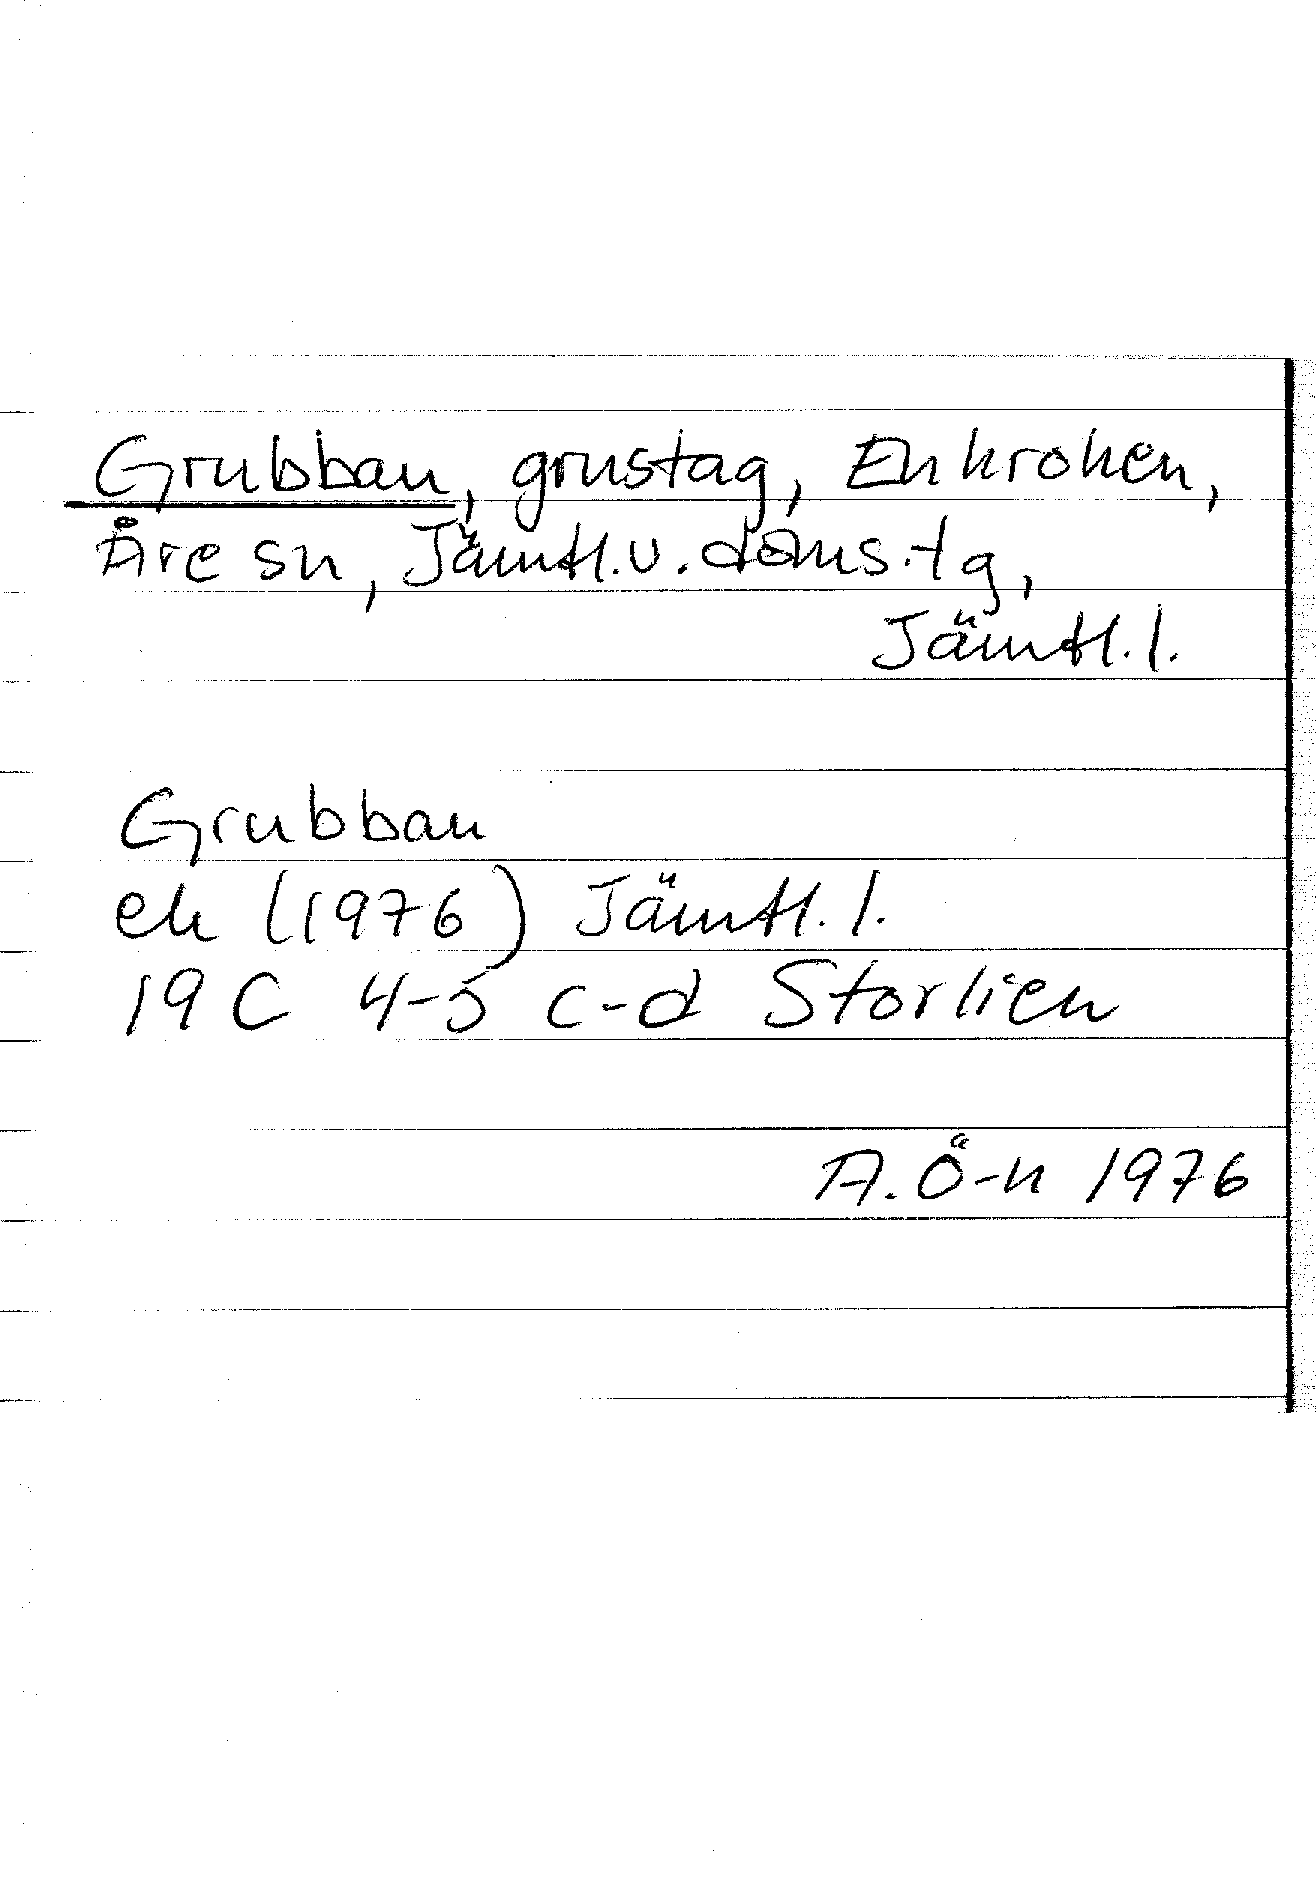 Grubban, grustag, Enkroken,
Åre sn, Jämtl.v. doms.tg,
Jämtl. l.
Grubban
ek (1976) Jämtl. l.
19 C 4-5 c-d Storlien
A. Ö-n 1976